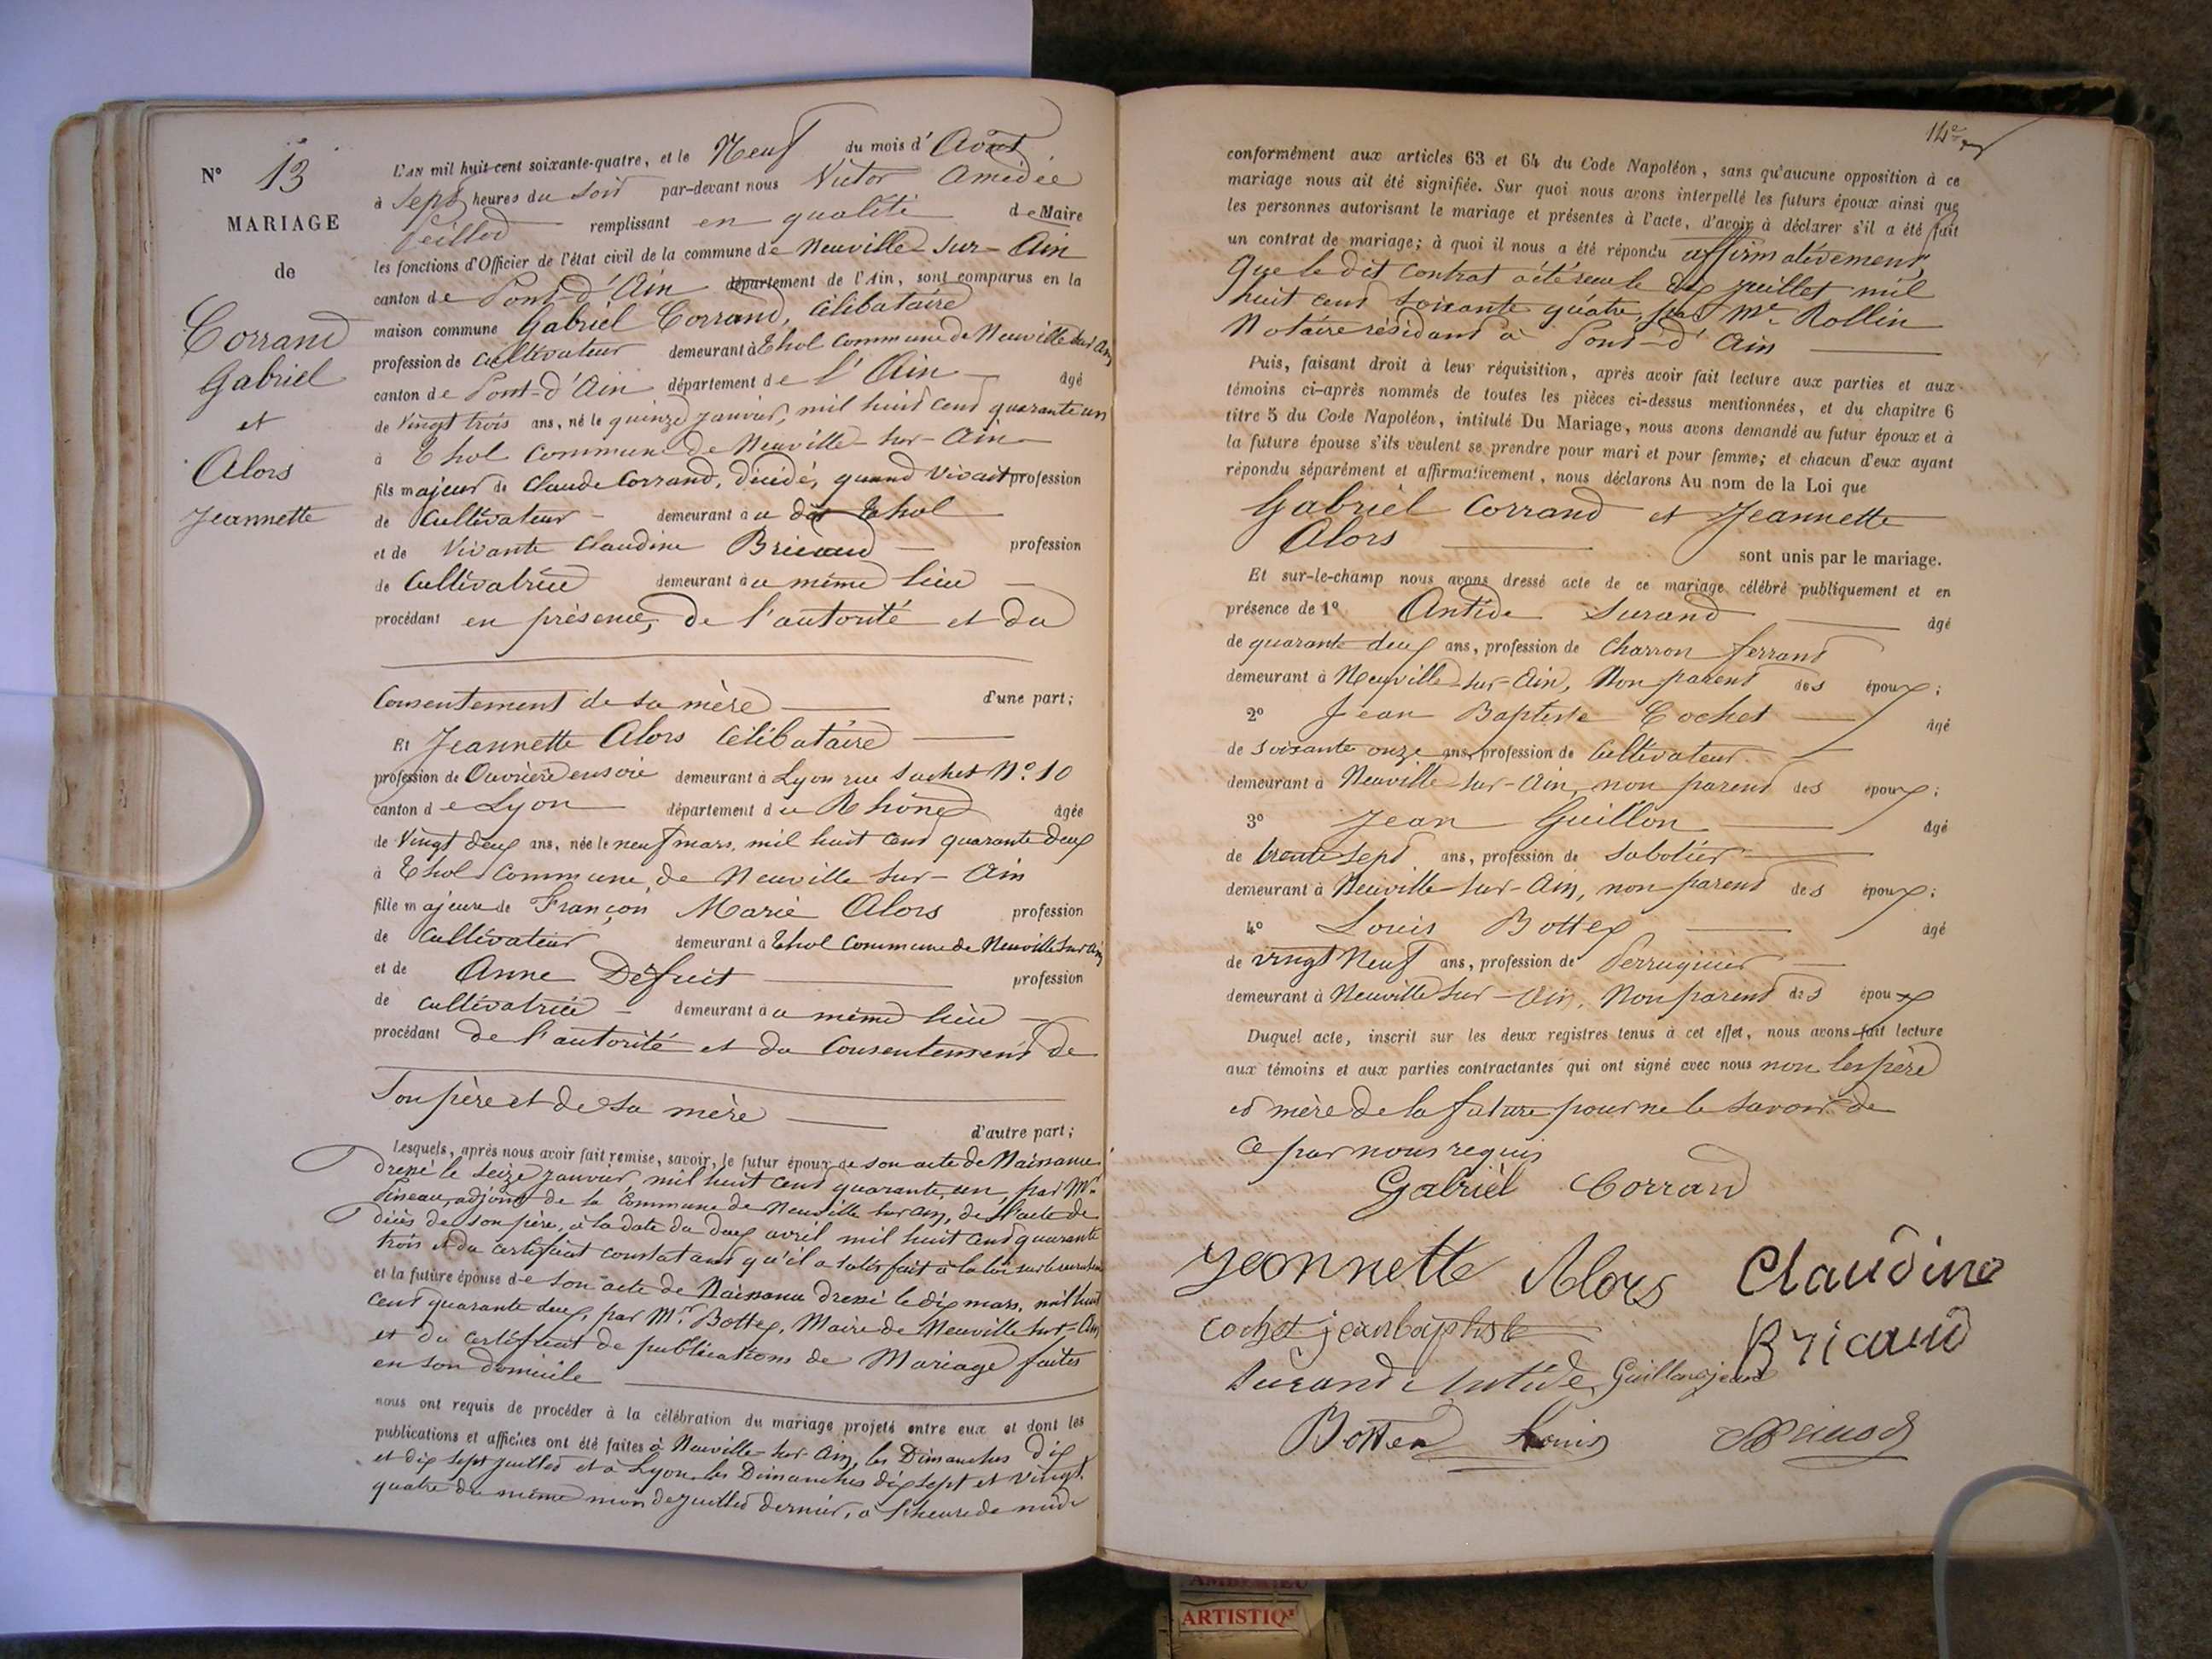 N° 13
MARIAGE
de
Corrand
Gabriel
et
Alors
Jeannette
L'AN mil huit cent soixante-quatre, et le Neuf du mois d'Août
à Sept heures du Soir par-devant nous Victor Amédée
remplissant en qualité de Maire
les fonctions d'Officier de l'état civil de la commune de Neuville-sur-Ain
canton de Pont-d'Ain département de l'Ain, sont comparus en la
maison commune Gabriel Corrand, Célibataire
profession de cultivateur demeurant à Thol commune de Neuville sur Ain
canton de Pont-d'Ain département de l'Ain âgé
de Vingt trois ans, né le quinze janvier, mil huit cent quarante un
à Thol commune de Neuville-sur-Ain
fils majeur de Claude Corrand, décédé, quand vivait profession
de Cultivateur demeurant au dit Thol
et de vivante Claudine Bricaud profession
de Cultivatrice demeurant au même lieu
procédant en présence, de l'autorité et du
Consentement de sa mère d'une part;
Et Jeannette Alors Célibataire
profession de Ouvrière en soie demeurant à Lyon rue Suchet N° 10
canton de Lyon département du Rhône âgée
de Vingt deux ans, née le neuf mars, mil huit cent quarante deux
à Thol commune, de Neuville sur-Ain
fille majeure de Françon Marie Alors profession
de Cultivateur demeurant à Thol commune de Neuville sur Ain
et de Anne Défuit profession
de cultivatrice demeurant au même lieu
procédant de l'autorité et du Consentement de
Son père et de sa mère
d'autre part;
Lesquels, après nous avoir fait remise, savoir, le futur époux de son acte de Naissance
dressé le seize janvier, mil huit cent quarante, un, par Mr
Pineau, adjoint de la Commune de Neuville sur Ain, de l'acte de
décès de son père, à la date du deux avril mil huit cent quarante
trois et du certificat constatant qu'il a satisfait à la loi sur le recrutement
et la future épouse de son acte de Naissance dressé le dix mars, mil huit
cent quarante deux, par Mr Bottex, Maire de Neuville sur-Ain
et du certificat de publications de Mariage faites
en son domicile
nous ont requis de procéder à la célébration du mariage projeté entre eux et dont les
publications et affiches ont été faites à Neuville-sur-Ain, les Dimanches dix
et dix sept juillet et à Lyon les Dimanches dix sept et vingt
quatre du même mois de juillet dernier, à l'heure de midi
14e
conformément aux articles 63 et 64 du Code Napoléon, sans qu'aucune opposition à ce
mariage nous ait été signifiée. Sur quoi nous avons interpellé les futurs époux ainsi que
les personnes autorisant le mariage et présentes à l'acte, d'avoir à déclarer s'il a été fait
un contrat de mariage; à quoi il nous a été répondu affirmativement,
Que le dit contrat a été reçu le dix juillet mil
huit cent soixante quatre, par Me Rollin
Notaire résidant à Pont-d'Ain
Puis, faisant droit à leur réquisition, après avoir fait lecture aux parties et aux
témoins ci-après nommés de toutes les pièces ci-dessus mentionnées, et du chapitre 6
titre 5 du Code Napoléon, intitulé Du Mariage, nous avons demandé au futur époux et à
la future épouse s'ils veulent se prendre pour mari et pour femme; et chacun d'eux ayant
répondu séparément et affirmativement, nous déclarons Au nom de la Loi que
Gabriel Corrand et Jeannette
Alors
sont unis par le mariage.
Et sur-le-champ nous avons dressé acte de ce mariage célébré publiquement et en
présence de 1° Antide Durand âgé
de quarante deux ans, profession de Charron ferrant
demeurant à Neuville-sur-Ain, Non parent des époux;
2° Jean Baptiste Cochet âgé
de soixante onze ans, profession de Cultivateur
demeurant à Neuville-sur-Ain, non parent des époux;
3° Jean Guillon âgé
de trente sept ans, profession de Sabotier
demeurant à Neuville-sur-Ain, non parent des époux;
4° Louis Bottex âgé
de vingt Neuf ans, profession de Perruquier
demeurant à Neuville sur-Ain, Non parent des époux
Duquel acte, inscrit sur les deux registres tenus à cet effet, nous avons fait lecture
aux témoins et aux parties contractantes qui ont signé avec nous non les père
et mère de la future pour ne le savoir de
ce par nous requis
Gabriel Corrand
Jeannette Alors Claudine
cochet jean baptiste Bricaud
Durand Antide Guillon jean
Bottex Louis
ARTISTIQ